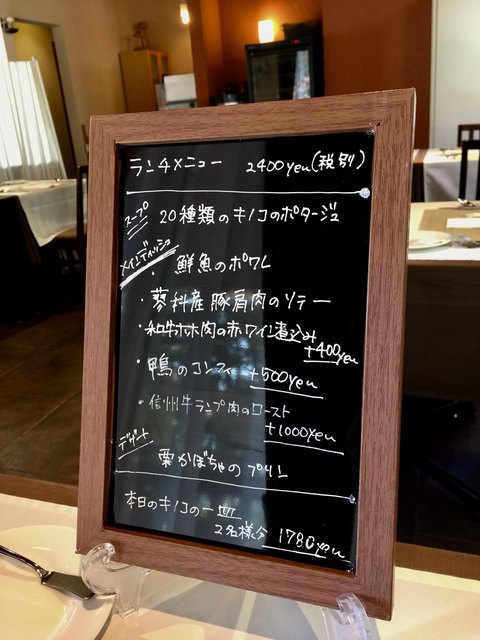 ランチメニュー 2400yen(税別)
スープ
20種類のキノコのポタージュ
メインディッシュ
鮮魚のポワレ
・蓼科産豚肩肉のソテー
・和牛ホホ肉の赤ワイン煮込み
+400yen
・鴨のコンフィ +500yen
・信州牛ランプ肉のロースト
+1000yen
デザート
栗かぼちゃのプリン
本日のキノコの一皿
2名様分 1780yen